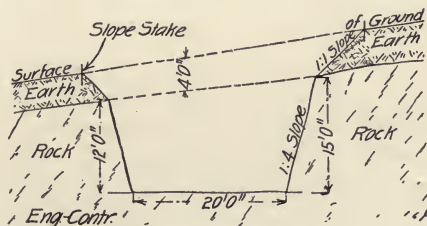 Slope Stake
of Ground
Surface
Earth
Earth
1:1 Slope
4'0"
Rock
Rock
12'0"
1:4 Slope
15'0"
20'0"
Eng-Contr.